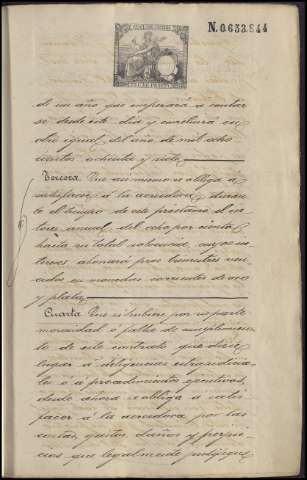 N.0.633.944
de un año que empezará a contar
se desde este dia y concluirá en
otro igual del año de mil ocho
cientos ochenta y siete
Tercera. Que asimismo se obliga a
satisfacer a la acreedora y duran
te el tiempo de este préstamo el in
teres anual del ocho por ciento
hasta su total solvencia, cuyos in
tereses abonará por trimestres ven
cidos en monedas corrientes de oro
y plata
Cuarta. Que si hubiere por su parte
morosidad o falta de cumplimien
to de este contrato que diere
lugar a diligencias extrajudicia
les o a procedimientos ejecutivos,
desde ahora se obliga a satis
facer a la acreedora por las
costas, gastos, daños y perjui
cios que legalmente justifique